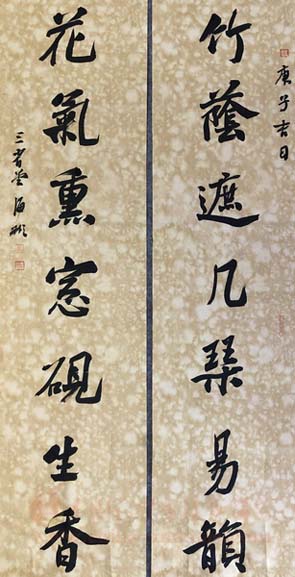 庚子吉日
竹蔭遮几琴易韻
花氣熏窓硯生香
三堂海